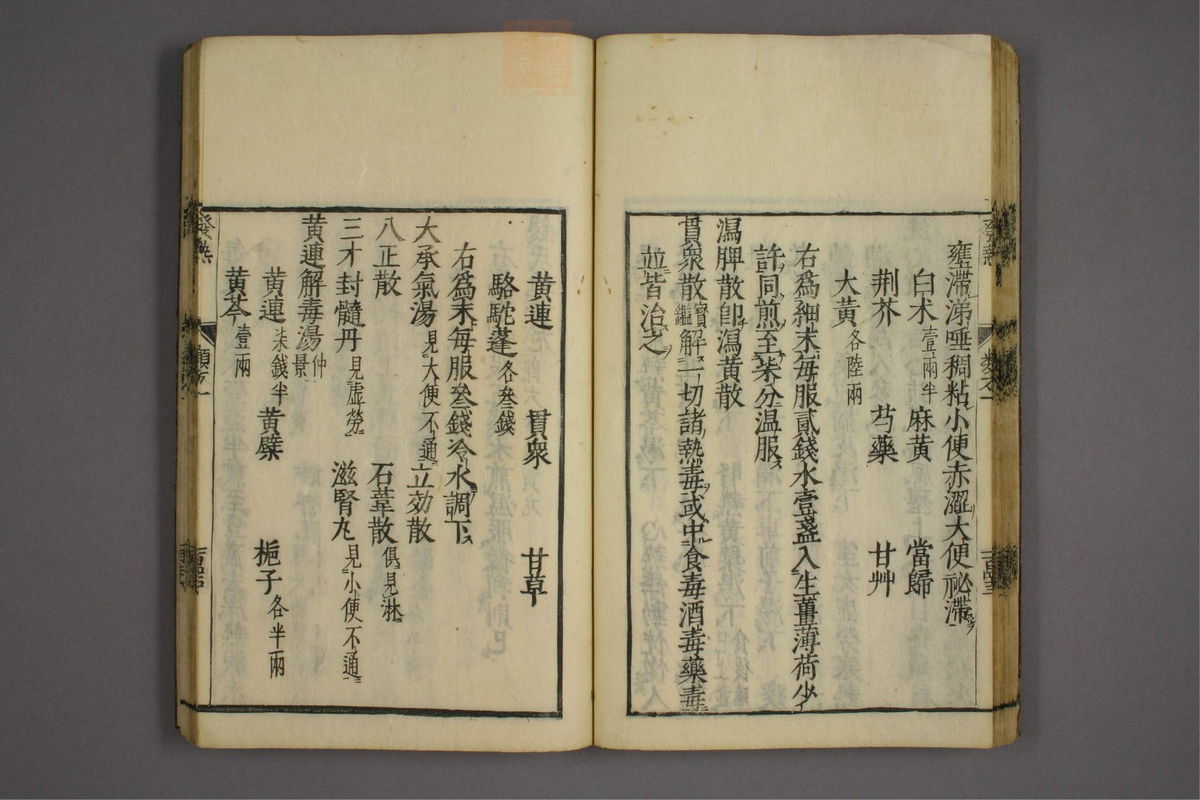 壅滯涕唾稠粘小便赤澀大便祕滯
白朮壹兩半 麻黃 當歸
荆芥 芍藥 甘艸
大黃各陸兩
右爲細末每服貳錢水壹盞入生薑薄荷少
許同煎至柒分温服
瀉脾散卽瀉黃散
貫衆散寶鑑解一切諸熱毒或中食毒酒毒藥毒
並皆治之
黃連 貫衆 甘草
駱駝蓬各叁錢
右爲末每服叁錢冷水調下
大承氣湯見大便不通 立効散
八正散 石葦散俱見淋
三才封髓丹見虛勞 滋腎丸見小便不通
黃連解毒湯仲景
黃連柒錢半 黃檗 梔子各半兩
黃芩壹兩